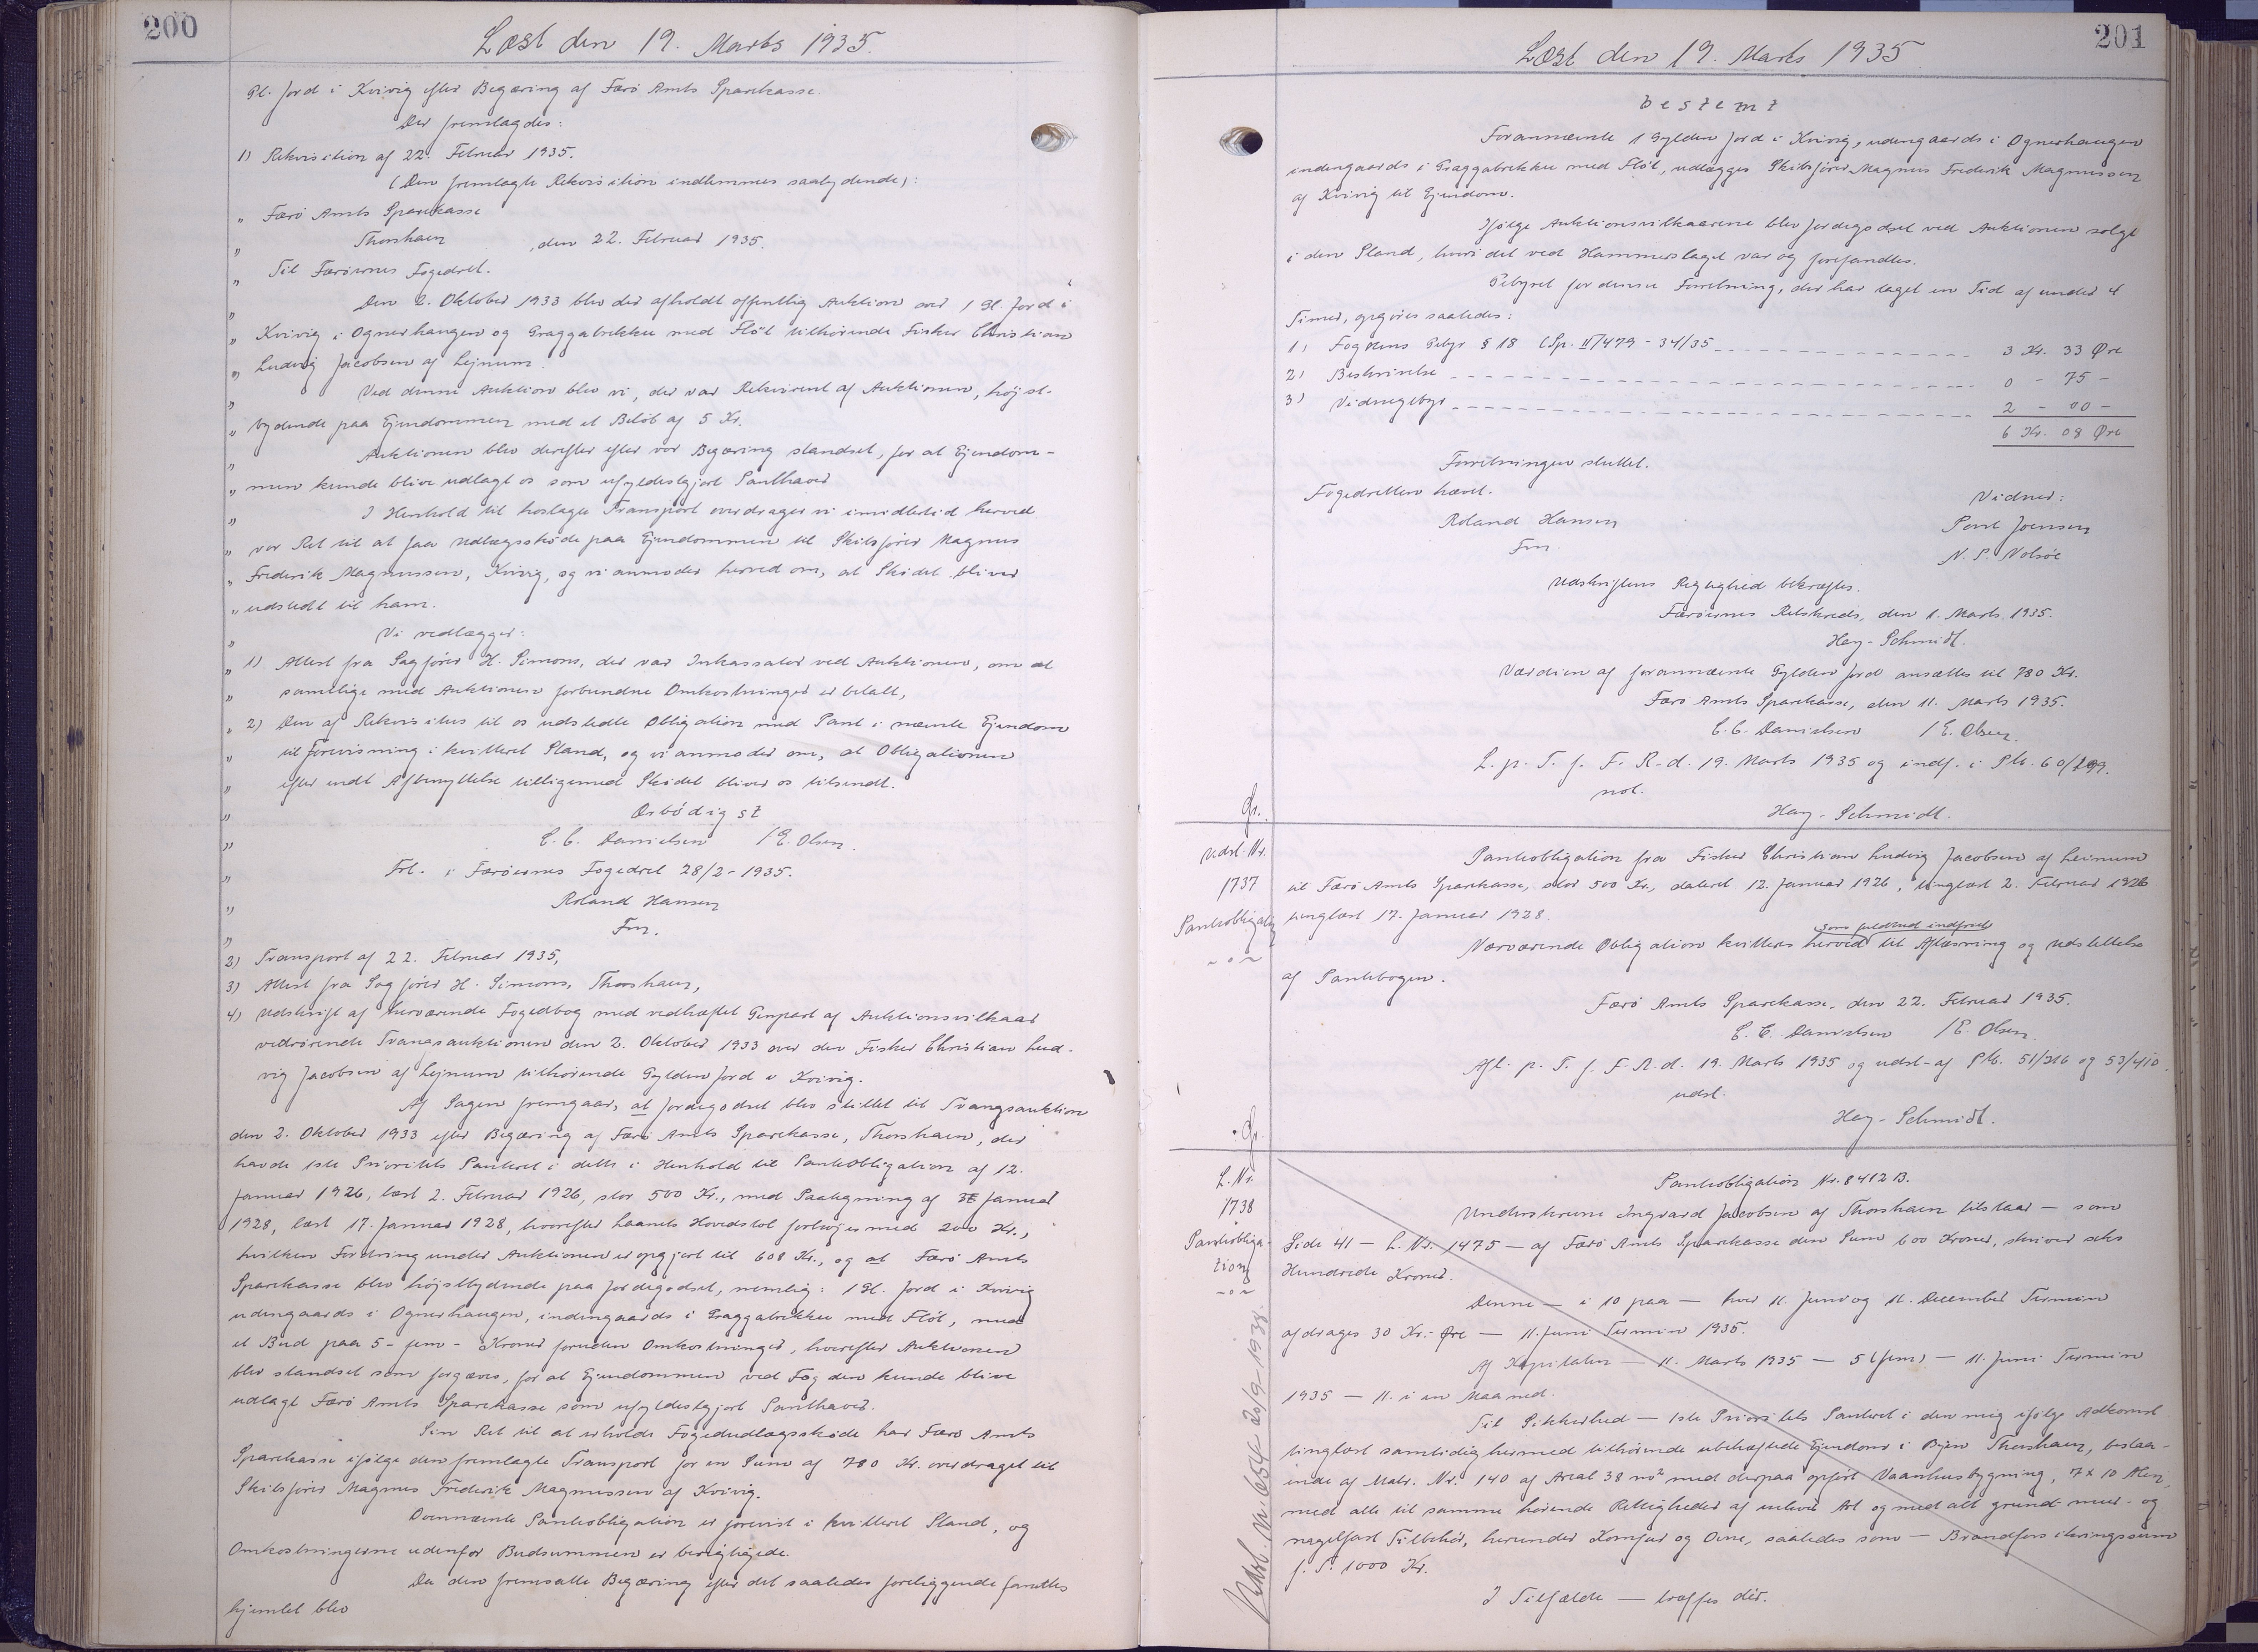 200
Læst den 19. Marts 1935.
Gl. Jord i Kvivig efter Begæring af Færø Amts Sparekasse.
Der fremlagdes:
1) Rekvisition af 22. Februar 1935.
(Den fremlagte Rekvisition indlemmes saalydende):
" Færø Amts Sparekasse
" Thorshavn , den 22. Februar 1935.
" Til Færøernes Fogedret.
" Den 2. Oktober 1933 blev der afholdt offentlig Auktion over 1 Gl. Jord i
" Kvivig i Ognerhaugen og Graggabrekku med Fløt tilhørende Fisker Christian
" Ludvig Jacobsen af Lejnum.
" Ved denne Auktion blev vi, der var Rekvirent af Auktionen, højst-
" bydende paa Ejendommen med et Beløb af 5 Kr.
" Auktionen blev derefter efter vor Begæring standset, for at Ejendom-
" men kunde blive udlagt os som ufyldestgjort Panthaver
" I Henhold til hoslagte Transport overdrager vi imidlertid herved
" vor Ret til at faa Udlægsskøde paa Ejendommen til Skibsfører Magnus
" Frederik Magnussen, Kvivig, og vi anmoder herved om, at Skødet bliver
" udstedt til ham.
" Vi vedlægger:
" 1) Attest fra Sagfører H. Simons, der var Inkassator ved Auktionen, om at
" samtlige med Auktionen forbundne Omkostninger er betalt,
" 2) Den af Rekvisitus til os udstedte Obligation med Pant i nævnte Ejendom
" til Forevisning i kvitteret Stand, og vi anmoder om, at Obligationen
" efter endt Afbenyttelse tilligemed Skødet bliver os tilsendt.
" Ærbødigst
" C. C. Danielsen / E. Olsen.
" Frl. i Færøernes Fogedret 28/2-1935.
" Roland Hansen
" Fm.
2) Transport af 22. Februar 1935,
3) Attest fra Sagfører H. Simons, Thorshavn,
4) Udskrift af herværende Fogedbog med vedhæftet Genpart af Auktionsvilkaar
vedrørende Tvangsauktionen den 2. Oktober 1933 over den Fisker Christian Lud-
vig Jacobsen af Lejnum tilhørende Gylden Jord i Kvivig.
Af Sagen fremgaar, at Jordegodset blev stillet til Tvangsauktion
den 2. Oktober 1933 efter Begæring af Færø Amts Sparekasse, Thorshavn, der
havde 1ste Prioritets Panteret i dette i Henhold til Panteobligation af 12.
Januar 1926, læst 2. Februar 1926, stor 500 Kr., med Paategning af Januar
1928, læst 17. Januar 1928, hvorefter Laanets Hovedstol forhøjes med 200 Kr.,
hvilken Fordring under Auktionen er opgjort til 608 Kr., og at Færø Amts
Sparekasse blev højstbydende paa Jordegodset, nemlig: 1 Gl. Jord i Kvivig
udengaards i Ognerhaugen, indengaards i Graggabrekku med Fløt, med
et Bud paa 5 - fem - Kroner foruden Omkostninger, hvorefter Auktionen
blev standset som forgæves, for at Ejendommen ved Fogden kunde blive
udlagt Færø Amts Sparekasse som ufyldestgjort Panthaver.
Sin Ret til at erholde Fogedudlægsskøde har Færø Amts
Sparekasse ifølge den fremlagte Transport for en Sum af 780 Kr. overdraget til
Skibsfører Magnus Frederik Magnussen af Kvivig.
Ovennævnte Panteobligation er forevist i kvitteret Stand, og
Omkostningerne udenfor Budsummen er berigtigede.
Da den fremsatte Begæring efter det saaledes foreliggende fandtes
hjemlet blev
201
Læst den 19. Marts 1935
bestemt
Forannævnte 1 Gylden Jord i Kvivig, udengaards i Ognerhaugen
indengaards i Graggabrekku med Fløt, udlægges Skibsfører Magnus Frederik Magnussen
af Kvivig til Ejendom.
Ifølge Auktionsvilkaarene blev Jordegodset ved Auktionen solgt
i den Stand, hvori det ved Hammerslaget var og forefandtes.
Gebyret for denne Forretning, der har taget en Tid af under 4
Timer, opgøres saaledes:
1) Fogdens Gebyr § 18 (Sp. II/479 - 34/35 3 Kr. 33 Øre
2) Beskrivelse 0 - 75 -
3) Vidnegebyr 2 - 00 -
6 Kr. 08 Øre
Forretningen sluttet.
Fogedretten hævet.
Vidner:
Roland Hansen
Poul Joensen
Fm.
N. P. Nolsøe
Udskriftens Rigtighed bekræftes.
Færøernes Retskreds, den 1. Marts 1935.
Hey-Schmidt.
Værdien af forannævnte Gylden Jord ansættes til 780 Kr.
Færø Amts Sparekasse, den 11. Marts 1935.
C. C. Danielsen / E. Olsen.
L. p. T. f. F. R. d. 19. Marts 1935 og indf. i Ptb. 60/199.
not.
Hey-Schmidt.
Gr.
Udsl. Nr.
1737
Panteobligation
~ o ~
Panteobligation fra Fisker Christian Ludvig Jacobsen af Leinum
til Færø Amts Sparekasse, stor 500 Kr., dateret 12. Januar 1926, tinglæst 2. Februar 1926
tinglæst 17. Januar 1928.
som fuldtud indfriet
Nærværende Obligation kvitteres herved til Aflæsning og Udslettelse
af Pantebogen.
Færø Amts Sparekasse, den 22. Februar 1935.
C. C. Danielsen / E. Olsen.
Afl. p. T. f. F. R. d. 19. Marts 1935 og udsl. af Ptb. 51/316 og 53/410.
udsl.
Hey-Schmidt.
Gr.
L. Nr.
1738
Panteobliga-
tion
~ o ~
Panteobligation Nr. 8412 B.
Underskrevne Ingvard Jacobsen af Thorshavn tilstaar — som
Side 41 — L. Nr. 1475 — af Færø Amts Sparekasse den Sum 600 Kroner, skriver seks
Hundrede Kroner.
Denne — i 10 paa — hver 11. Juni og 11. December Termin
afdrages 30 Kr. - Øre — 11. Juni Termin 1935.
Af Kapitalen — 11. Marts 1935 — 5 (fem) — 11. Juni Termin
1935 — 11. i en Maaned.
Til Sikkerhed — 1ste Prioritets Panteret i den mig ifølge Adkomst
tinglæst samtidig hermed tilhørende ubehæftede Ejendom i Byen Thorshavn, bestaa-
ende af Matr. Nr. 140 af Areal 38 m² med derpaa opført Vaanhusbygning, 7 x 10 Alen,
med alle til samme hørende Rettigheder af enhver Art og med alt grund- mur- og
nagelfast Tilbehør, herunder Komfur og Ovne, saaledes som — Brandforsikringssum
f. T. 1000 Kr.
I Tilfælde — træffes dér.
20/9-1938.